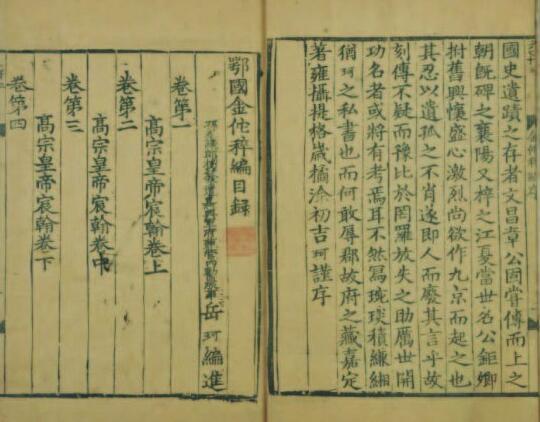 國史遺蹟之存者文昌章公固嘗傳而上之
朝既碑之襄陽又梓之江夏當世名公鉅卿
拊舊興懷盛心激烈尚欲作九京而起之也
其忍以遺孤之不肖遂即人而廢其言乎故
刻傳不疑而豫比於罔羅放失之助厲世開
功名者或將有考焉耳不然冩琬琰積縑緗
猶珂之私書也而何敢辱郡故府之藏嘉定
著雍攝提格歲橘涂初吉珂謹序
鄂國金佗稡編目錄
岳珂編進
卷第一
高宗皇帝宸翰卷上
卷第二
高宗皇帝宸翰卷中
卷第三
高宗皇帝宸翰卷下
卷第四